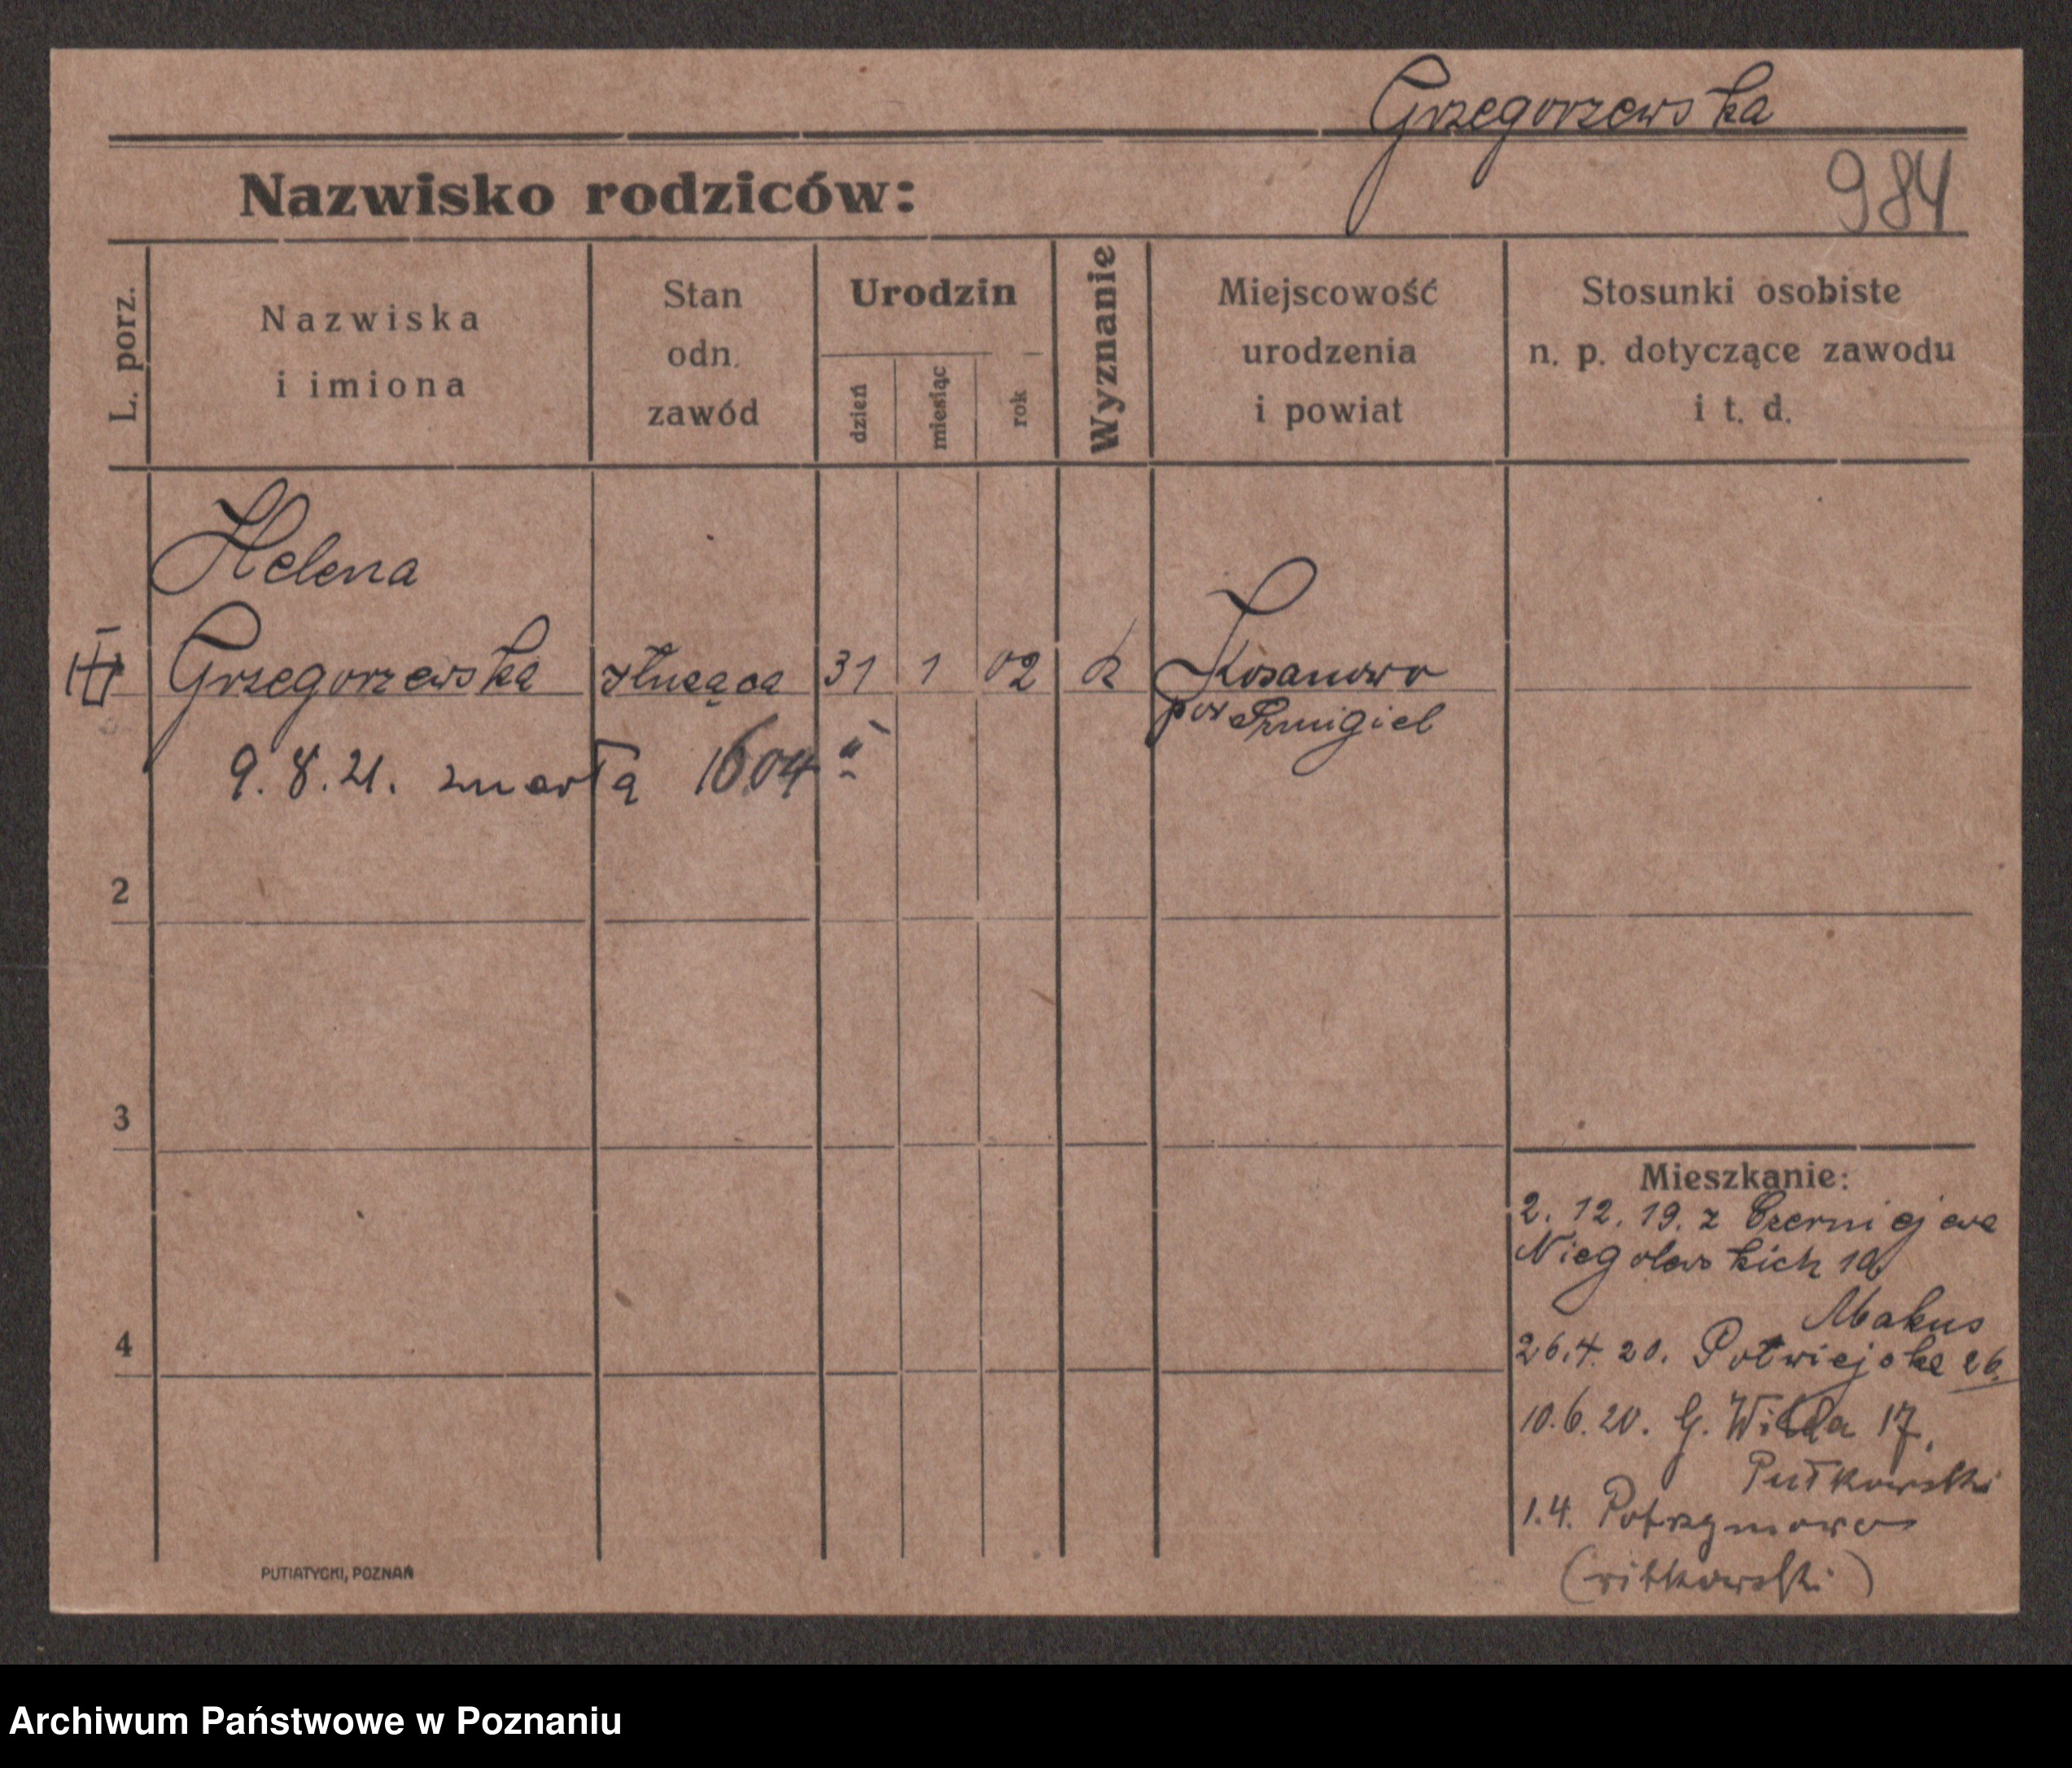 Grzegorzewska
Nazwisko rodziców:
984
L. porz.
Nazwiska
i imiona
Stan
odn.
zawód
Urodzin
dzień
miesiąc
rok
Wyznanie
Miejscowość
urodzenia
i powiat
Stosunki osobiste
n. p. dotyczące zawodu
i t. d.
Helena
Grzegorzewska służąca 31 1 02 k Kosanowo
pow Szmigiel
9. 8. 21. zmarła 1604
2
3
4
Mieszkanie:
2. 12. 19. z Czerniejewa
Niegolewskich 10
Makus
26.4. 20. Półwiejska 26.
10. 6. 20. G. Wilda 17,
Pułkowski
1. 4.
PUTIATYCKI, POZNAŃ
Archiwum Państwowe w Poznaniu